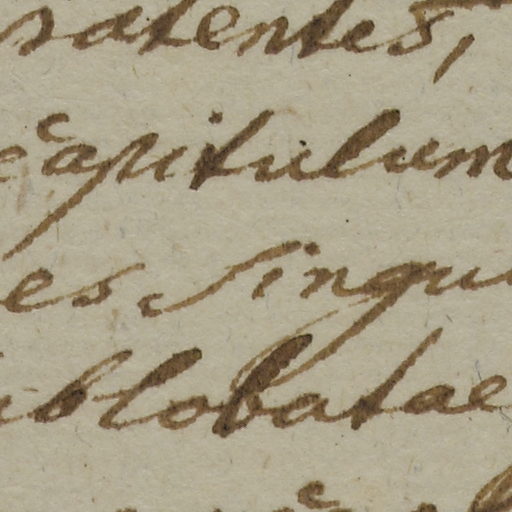 ratentes,
capitulum
es singu
ublobatae